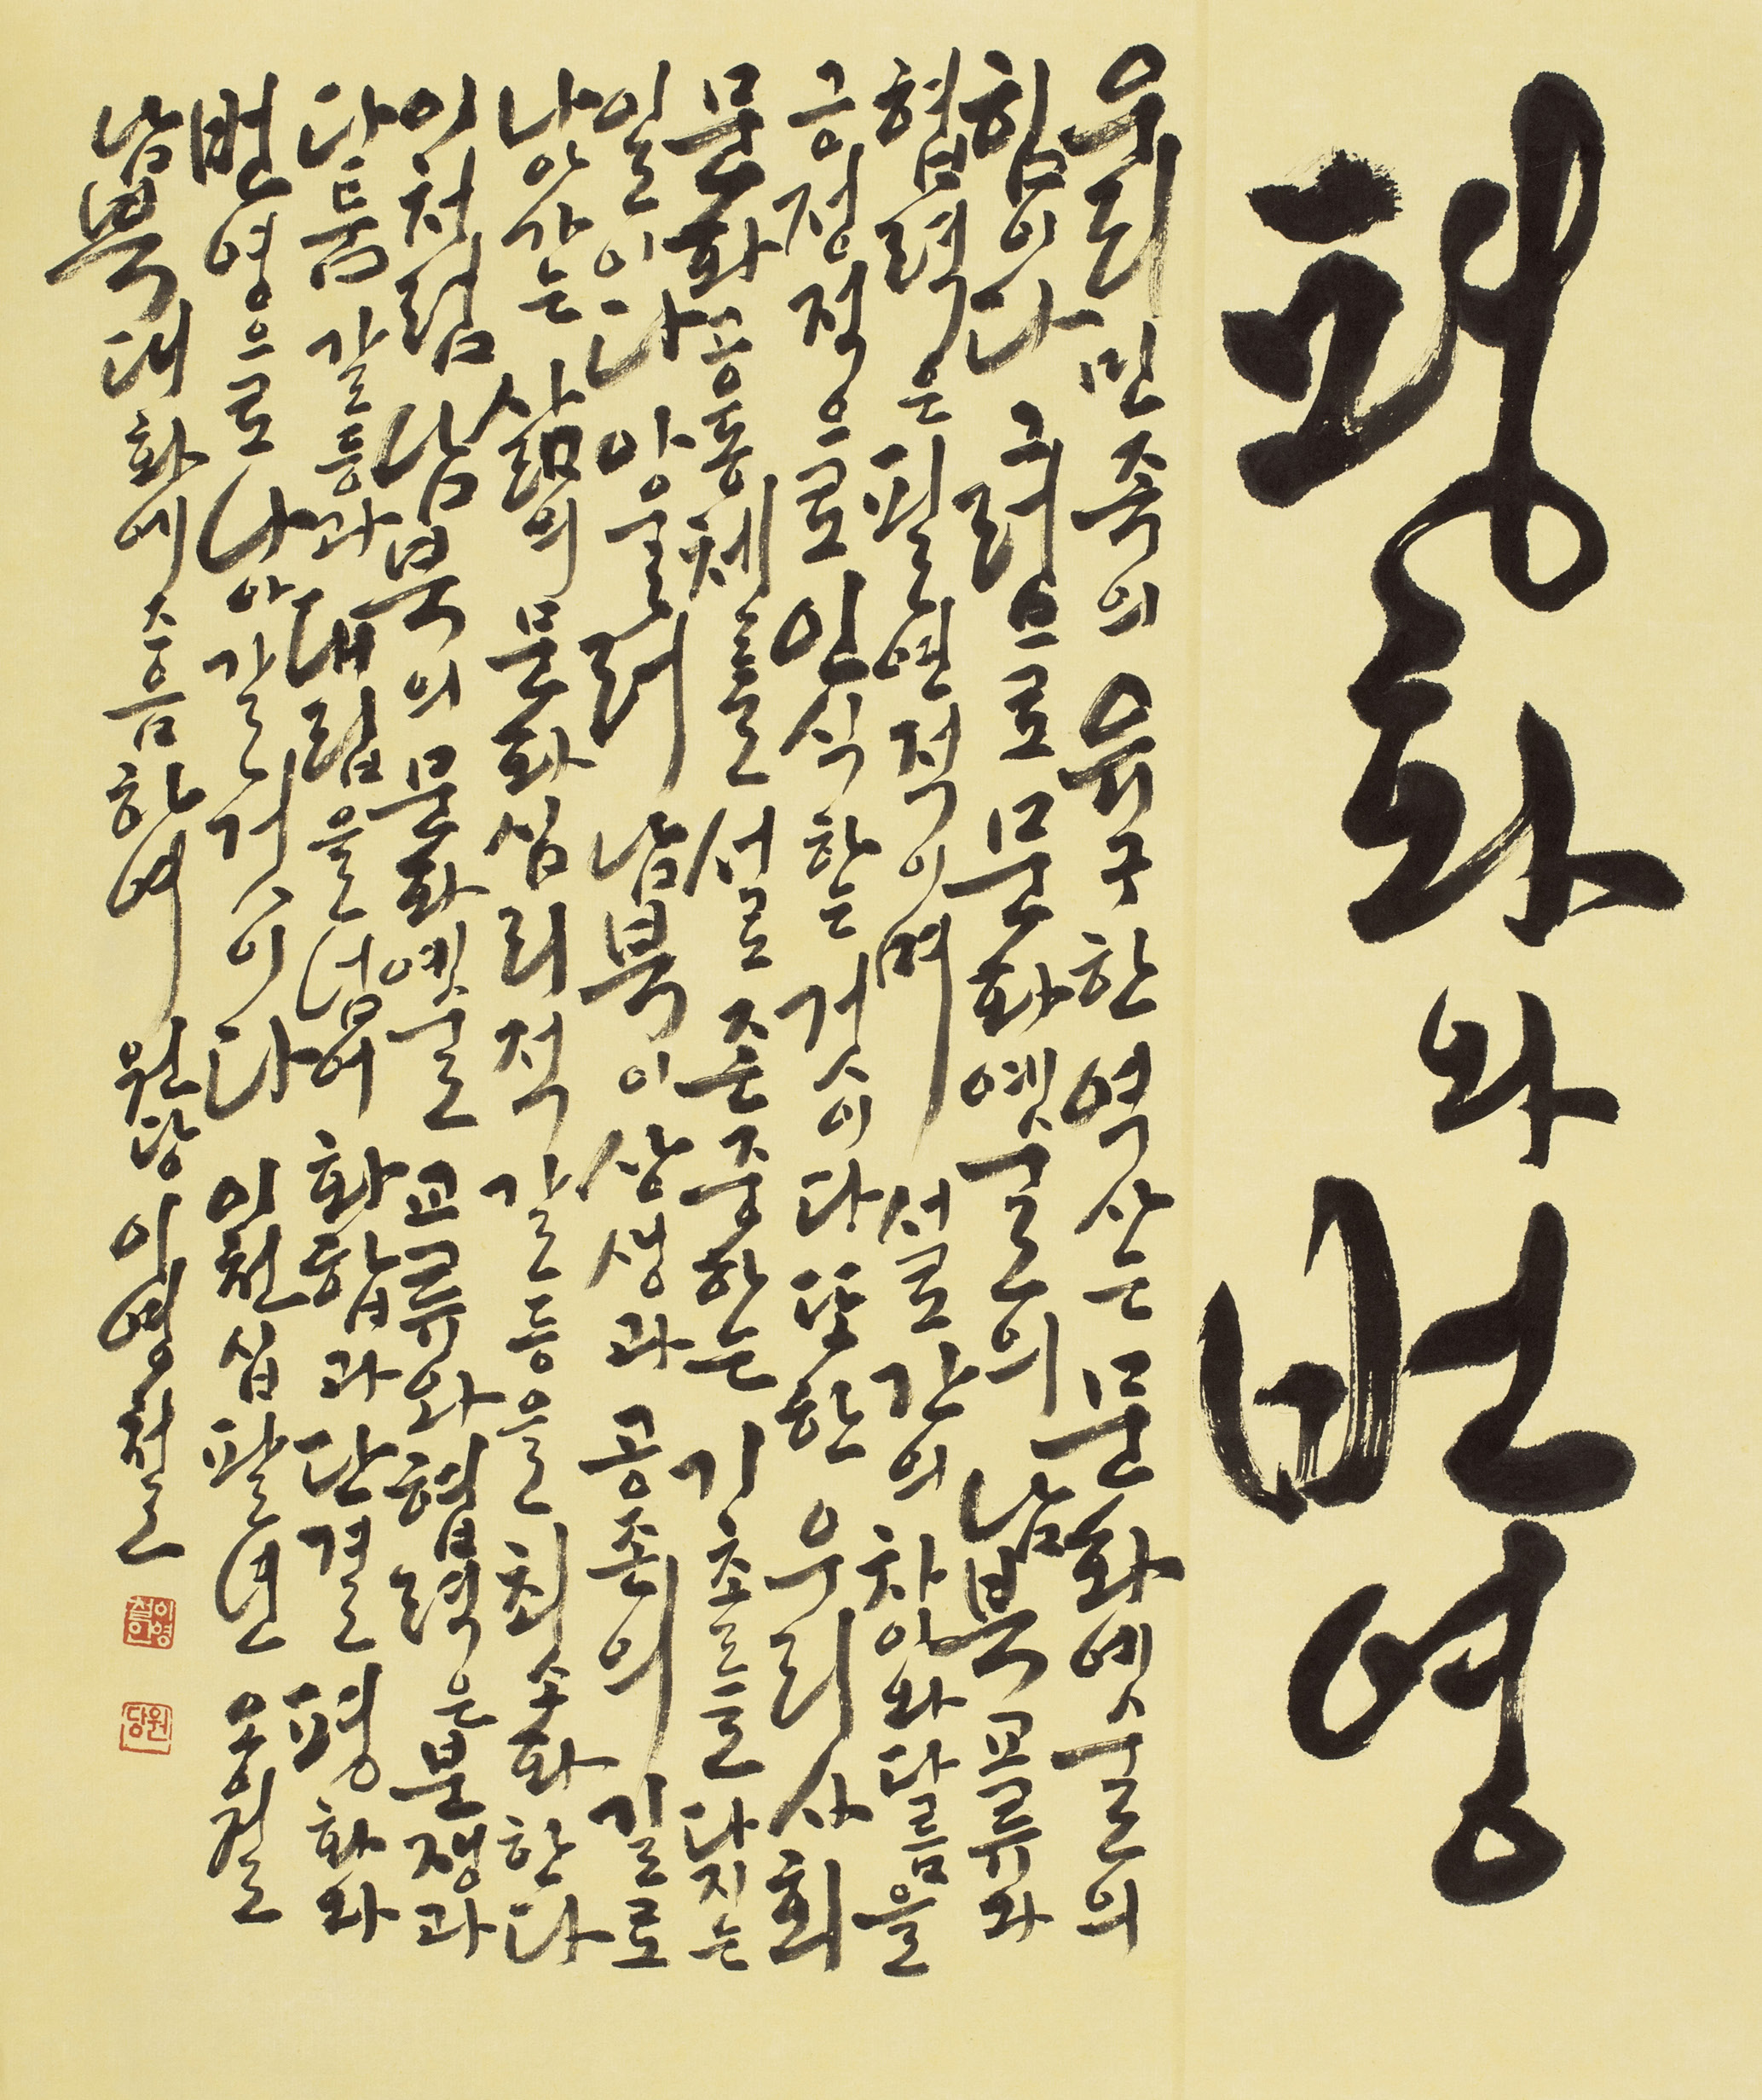 평화와 번영
우리 민족의 유구한 역사는 문화예술의
힘이다 그러므로 문화예술의 남북교류와
협력은 필연적이며 서로 간의 차이와 다름을
긍정적으로 인식하는 것이다 또한 우리 사회
문화공동체를 서로 존중하는 기초를 다지는
일이다 아울러 남북이 상생과 공존의 길로
나아가는 삶의 문화 심리적 갈등을 최소화한다
이처럼 남북의 문화예술 교류와 협력은 분쟁과
다툼 갈등과 대립을 넘어 화합과 단결 평화와
번영으로 나아갈 것이다 이천십팔년
남북대화에 즈음하여 원당 이영철
이영철인
원당